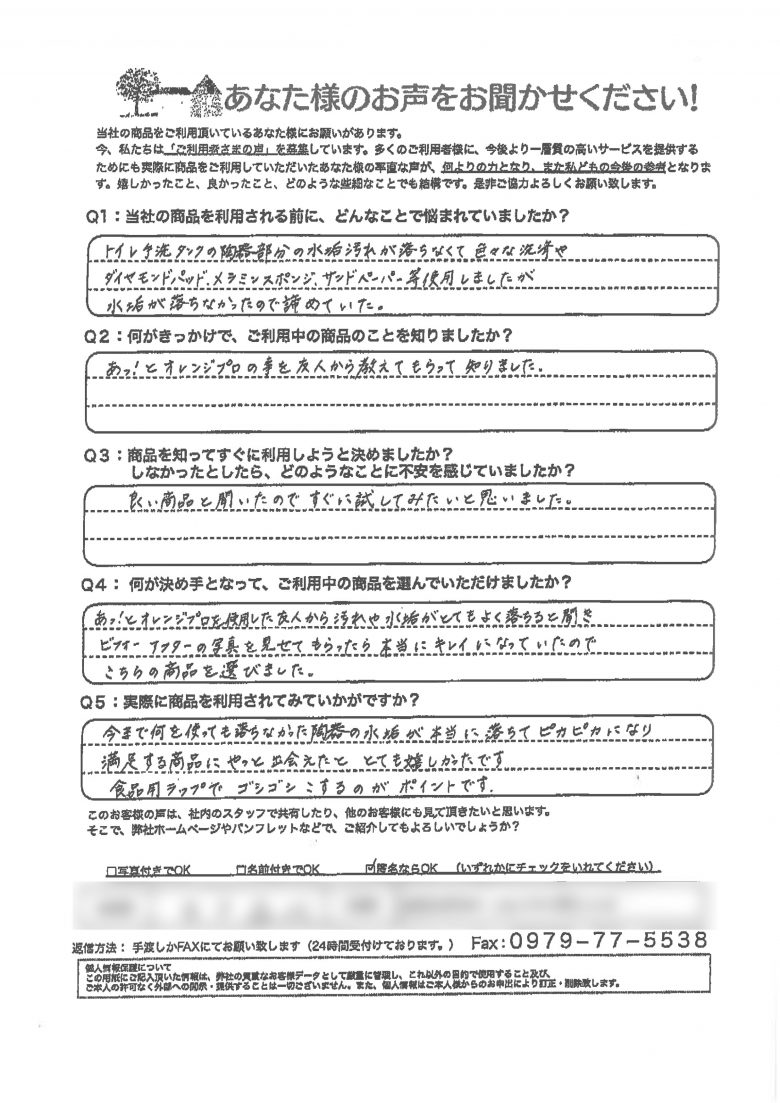 あなた様のお声をお聞かせください!
当社の商品をご利用頂いているあなた様にお願いがあります。
今、私たちは「ご利用者さまの声」を募集しています。多くのご利用者様に、今後より一層質の高いサービスを提供する
ためにも実際に商品をご利用していただいたあなた様の率直な声が、何よりの力となり、また私どもの今後の参考となりま
す。嬉しかったこと、良かったこと、どのような些細なことでも結構です。是非ご協力よろしくお願い致します。
Q1：当社の商品を利用される前に、どんなことで悩まれていましたか？
トイレ手洗タンクの陶器部分の水垢汚れが落ちなくて色々な洗済や
ダイヤモンドパッド、メラミンスポンジ、サンドペーパー等使用しましたが
水垢が落ちなかったので諦めていた。
Q2：何がきっかけで、ご利用中の商品のことを知りましたか？
あっ!とオレンジプロの事を友人から教えてもらって知りました。
Q3：商品を知ってすぐに利用しようと決めましたか？
しなかったとしたら、どのようなことに不安を感じていましたか？
良い商品と聞いたのですぐに試してみたいと思いました。
Q4： 何が決め手となって、ご利用中の商品を選んでいただけましたか？
あっ!とオレンジプロを使用した友人から汚れや水垢がとてもよく落ちると聞き
ビフォーアフターの写真を見せてもらったら本当にキレイになっていたので
こちらの商品を選びました。
Q5：実際に商品を利用されてみていかがですか？
今まで何を使っても落ちなかった陶器の水垢が本当に落ちてピカピカになり
満足する商品にやっと出会えたととても嬉しかったです
食品用ラップでゴシゴシこするのがポイントです.
このお客様の声は、社内のスタッフで共有したり、他のお客様にも見て頂きたいと思います。
そこで、弊社ホームページやパンフレットなどで、ご紹介してもよろしいでしょうか？
□写真付きでOK □名前付きでOK ☑匿名ならOK （いずれかにチェックをいれてください）
返信方法： 手渡しかFAXにてお願い致します（24時間受付ております。） Fax:0979-77-5538
個人情報保護について
この用紙にご記入頂いた情報は、弊社の貴重なお客様データとして厳重に管理し、これ以外の目的で使用すること及び、
ご本人の許可なく外部への開示・提供することは一切ございません。また、個人情報はご本人様からのお申出により訂正・削除致します。